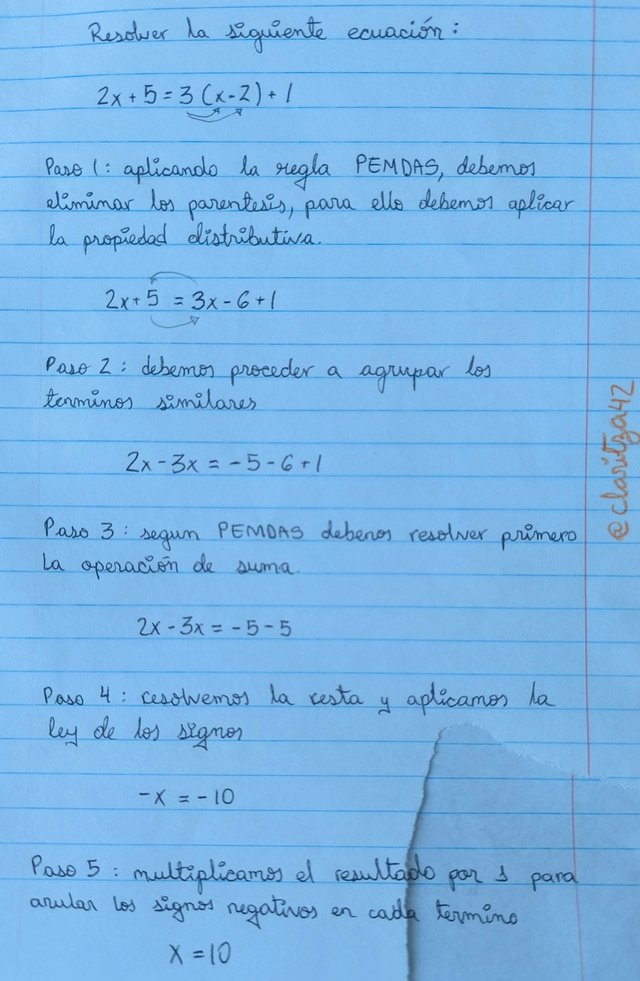 Resolver la siguiente ecuación:
2x + 5 = 3 (x - 2) + 1
Paso 1: aplicando la regla PEMDAS, debemos
eliminar los parentesis, para ello debemos aplicar
la propiedad distributiva.
2x + 5 = 3x - 6 + 1
Paso 2: debemos proceder a agrupar los
terminos similares
2x - 3x = -5 - 6 + 1
Paso 3: segun PEMDAS debenos resolver primero
la operación de suma.
2x - 3x = -5 - 5
Paso 4: resolvemos la resta y aplicamos la
ley de los signos
-x = -10
Paso 5: multiplicamos el resultado por 1 para
anular los signos negativos en cada termino
x = 10
@claritza42